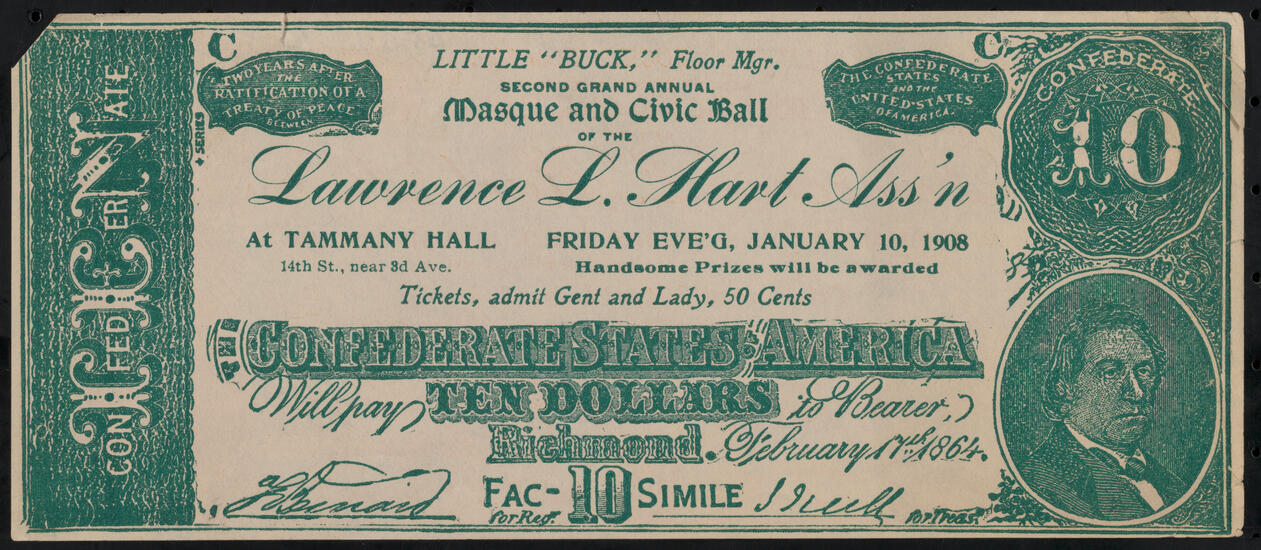 CONFEDERATE
TEN
C
TWO YEARS AFTER
THE
RATIFICATION OF A
TREATY OF PEACE
BETWEEN
SERIES
LITTLE "BUCK," Floor Mgr.
SECOND GRAND ANNUAL
Masque and Civic Ball
OF THE
Lawrence L. Hart Ass'n
At TAMMANY HALL FRIDAY EVE'G, JANUARY 10, 1908
14th St., near 3d Ave. Handsome Prizes will be awarded
Tickets, admit Gent and Lady, 50 Cents
C
THE CONFEDERATE
STATES
AND THE
UNITED STATES
OF AMERICA.
CONFEDERATE
10
THE CONFEDERATE STATES OF AMERICA
Will pay TEN DOLLARS to Bearer,
Richmond. February 17th 1864.
FAC-10 SIMILE
for Reg. for Treas.